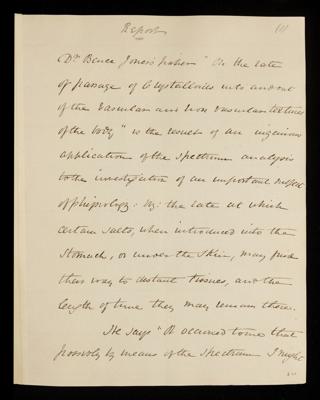 Report
Dr. Bence Jones's paper "On the rate
of passage of Crystalloids into and out
of the Vascular and Non Vascular textures
of the body" is the result of an ingenious
application of the spectrum analysis
to the investigation of an important subject
of physiology: viz: the rate at which
certain salts, when introduced into the
stomach, or under the skin, may find
their way to distant tissues, and the
length of time they may remain there.
He says "It occurred to me that
possibly by means of the Spectrum I might